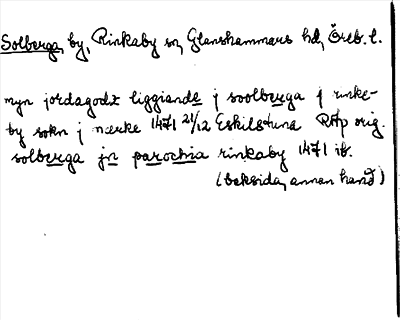 Solberga, by, Rinkaby sn, Glanshammars hd, Öreb. l.
myn jordagodz liggiande j soolberga j rinke-
by sokn j nærke 1471 21/12 Eskilstuna RAp orig.
solberga jn parochia rinkaby 1471 ib.
(baksida, annan hand)